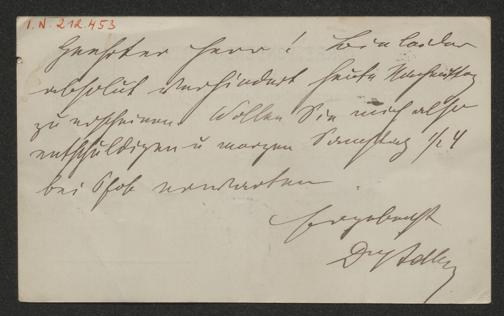 I.N. 212.453
Geehrter Herr! Bin leider
absolut verhindert heute Nachmittag
zu erscheinen. Wollen Sie mich also
entschuldigen u morgen Samstag 1/2 4
bei Pfob erwarten
Ergebenst
Dr Adler